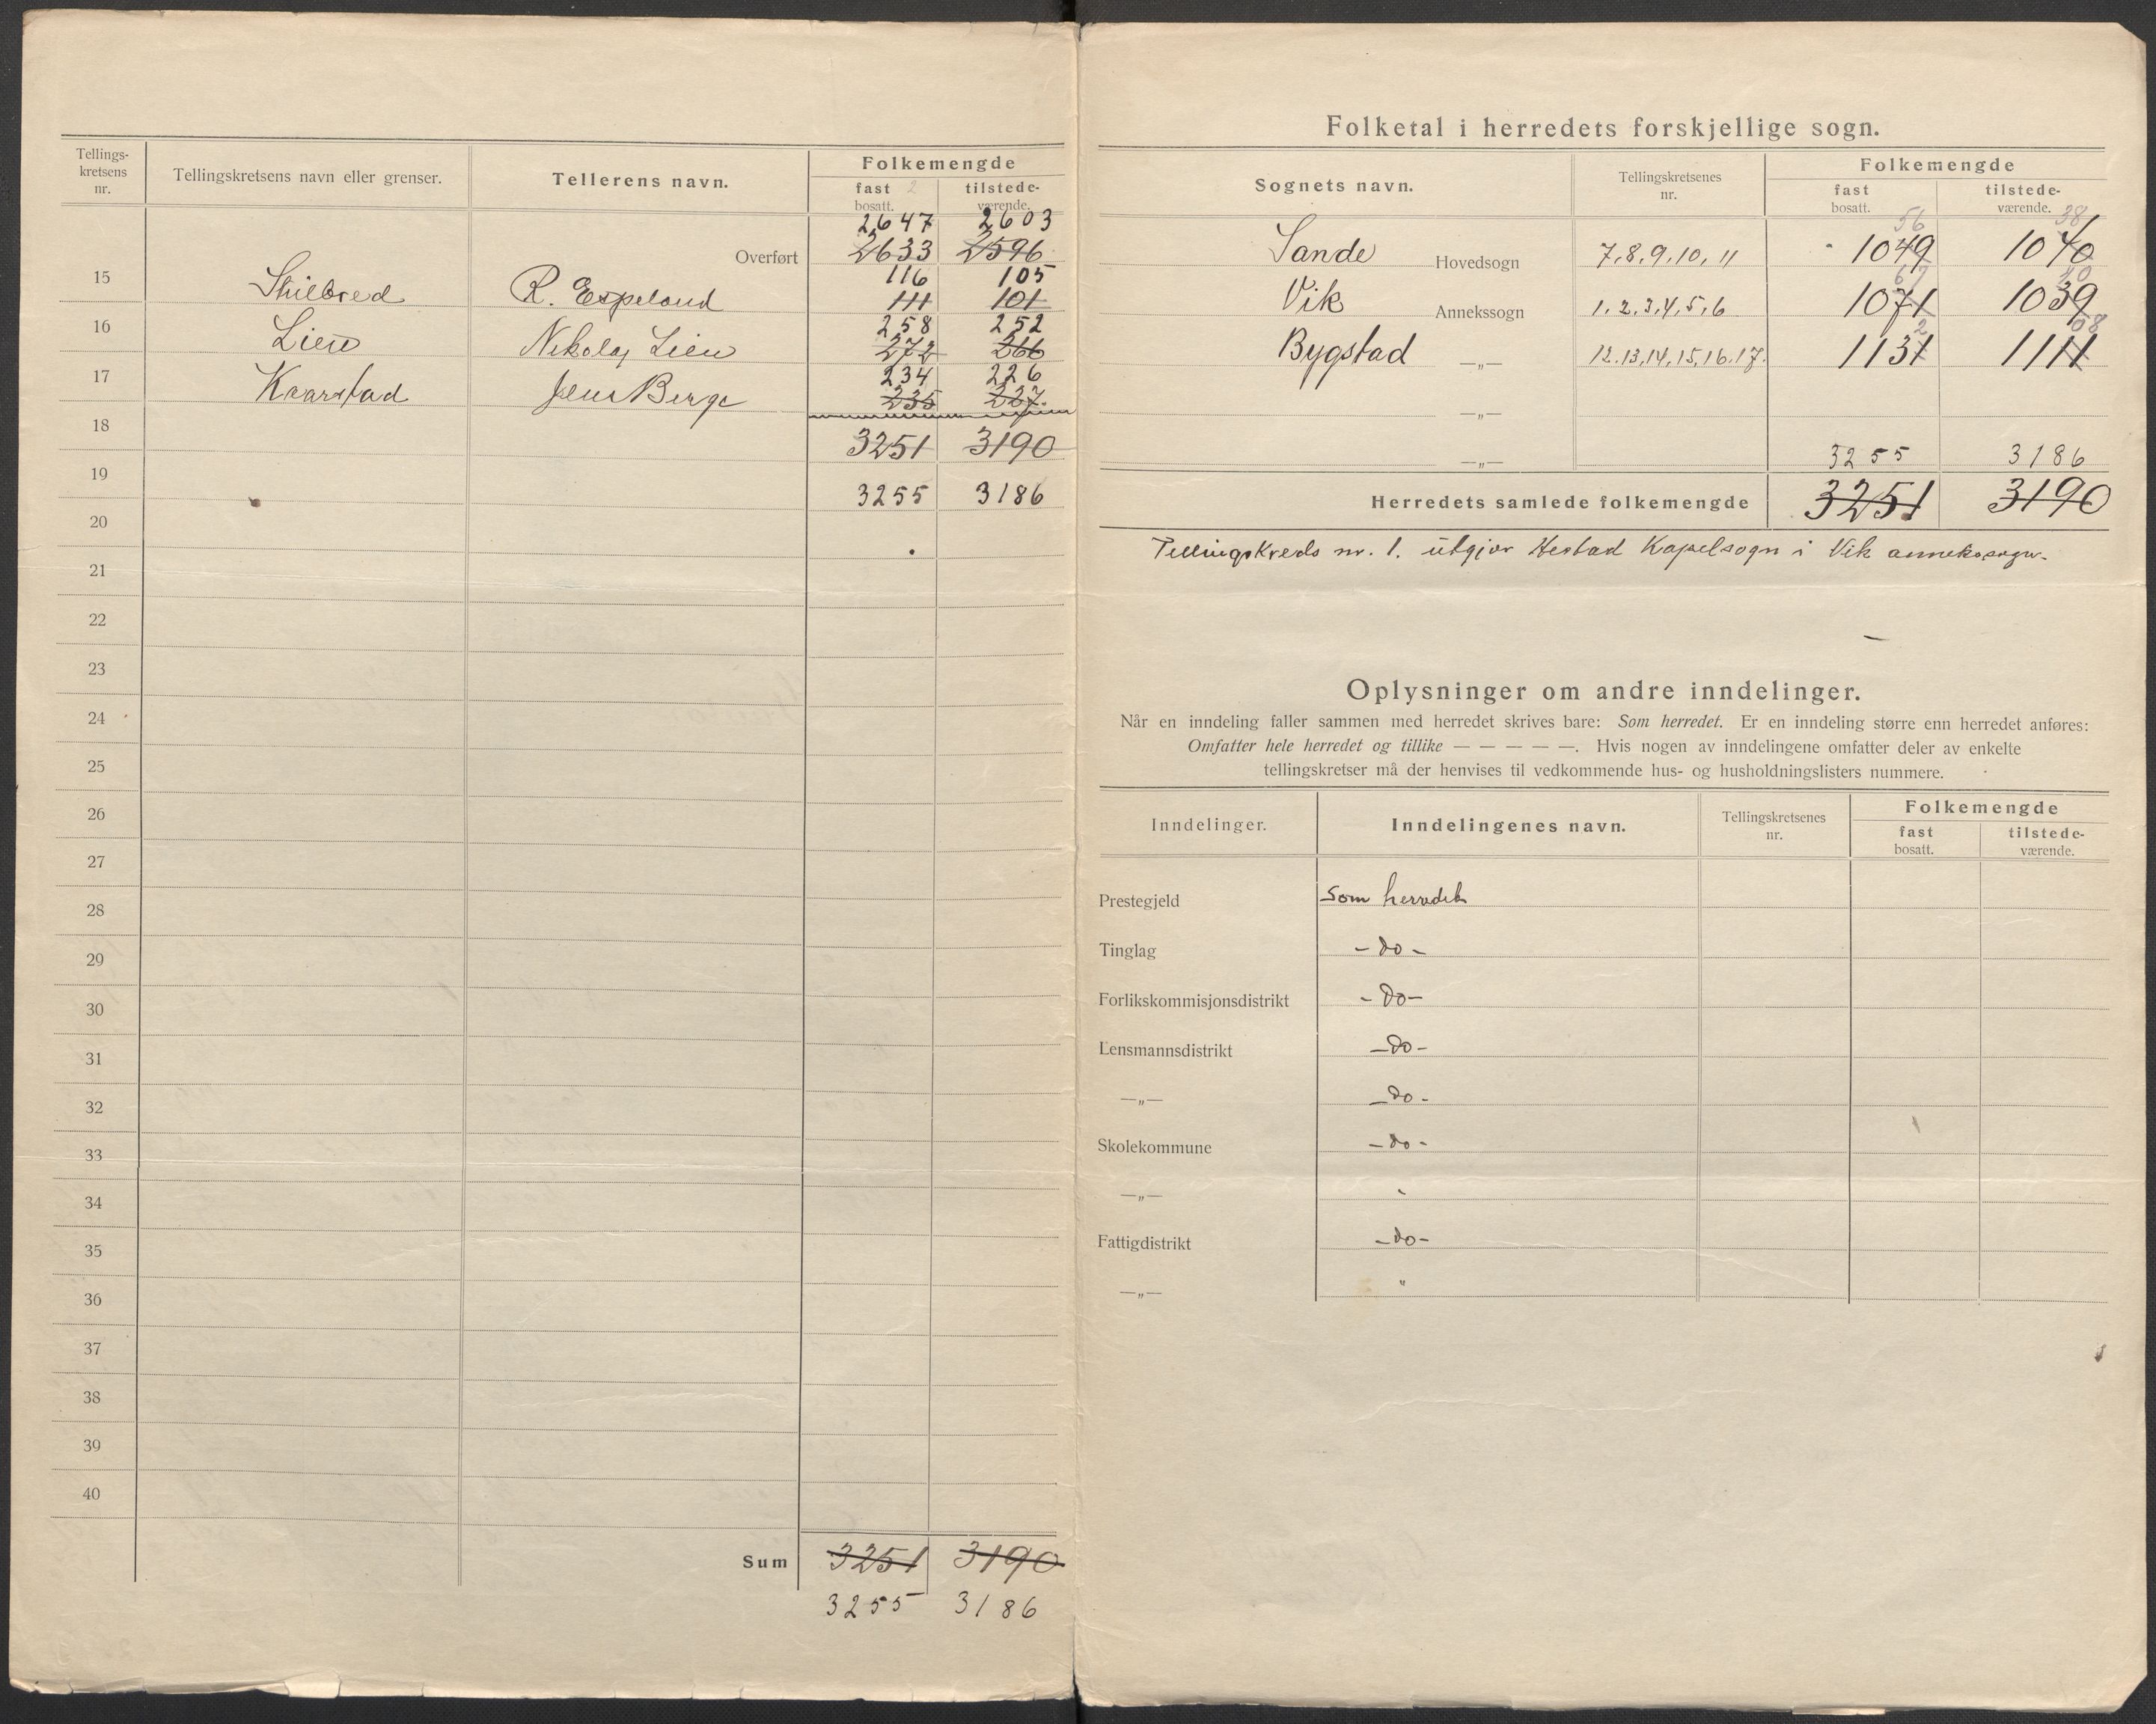 Tellings-
kretsens
nr.
Tellingskretsens navn eller grenser.
Tellerens navn.
Folkemengde
fast
bosatt.
tilstede-
værende.
2647 2603
Overført 2633 2596
116 105
15 Skilbred R. Espeland 111 101
258 252
16 Lien Nikolay Lien 272 266
234 226
17 Kaarstad Jens Berge 235 227
18 3251 3190
19 3255 3186
20
21
22
23
24
25
26
27
28
29
30
31
32
33
34
35
36
37
38
39
40
Sum 3251 3190
3255 3186
Folketal i herredets forskjellige sogn.
Sognets navn.
Tellingskretsenes
nr.
Folkemengde
fast
bosatt.
tilstede-
værende.
56 38
Sande Hovedsogn 7, 8, 9, 10, 11 1049 1040
67 40
Vik Annekssogn 1, 2, 3, 4, 5, 6 1071 1039
2 08
Bygstad —„— 12, 13, 14, 15, 16, 17. 1131 1111
—„—
—„— 3255 3186
Herredets samlede folkemengde 3251 3190
Tellingskreds nr. 1. utgjør Hestad Kapelsogn i Vik annekssogn.
Oplysninger om andre inndelinger.
Når en inndeling faller sammen med herredet skrives bare: Som herredet. Er en inndeling større enn herredet anføres:
Omfatter hele herredet og tillike — — — — —. Hvis nogen av inndelingene omfatter deler av enkelte
tellingskretser må der henvises til vedkommende hus- og husholdningslisters nummere.
Inndelinger.
Inndelingenes navn.
Tellingskretsenes
nr.
Folkemengde
fast
bosatt.
tilstede-
værende.
Prestegjeld Som herredet
Tinglag - do -
Forlikskommisjonsdistrikt - do -
Lensmannsdistrikt - do -
—„— - do -
Skolekommune - do -
—„— "
Fattigdistrikt - do -
—„— "